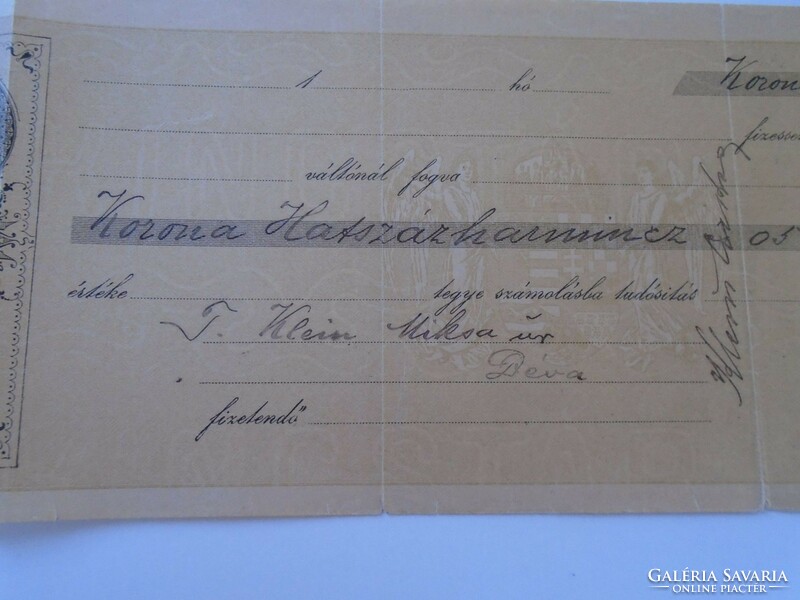 1 hó Koron
fizesse
váltónál fogva
Korona Hatszázharmincz 05
értéke tegye számolásba tudósitás
T. Klein Miksa úr
Déva
fizetendő
GALÉRIA SAVARIA
ONLINE PIACTÉR